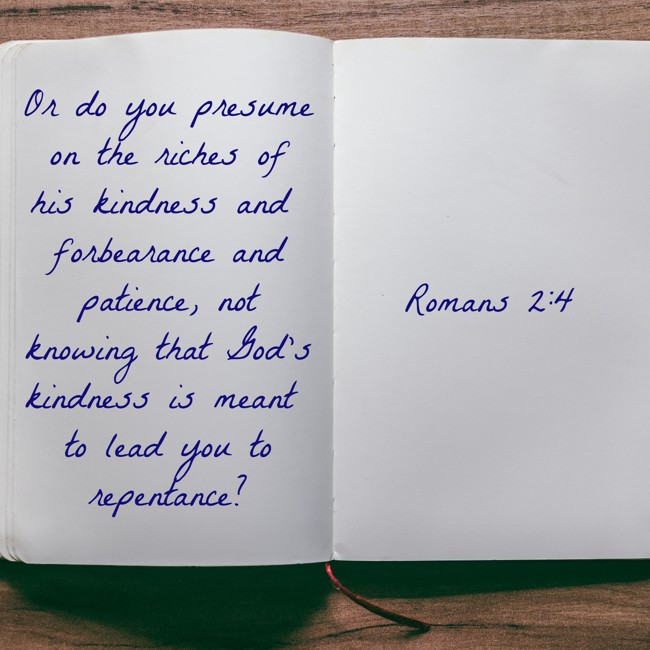 Or do you presume
on the riches of
his kindness and
forbearance and
patience, not
knowing that God's
kindness is meant
to lead you to
repentance?
Romans 2:4